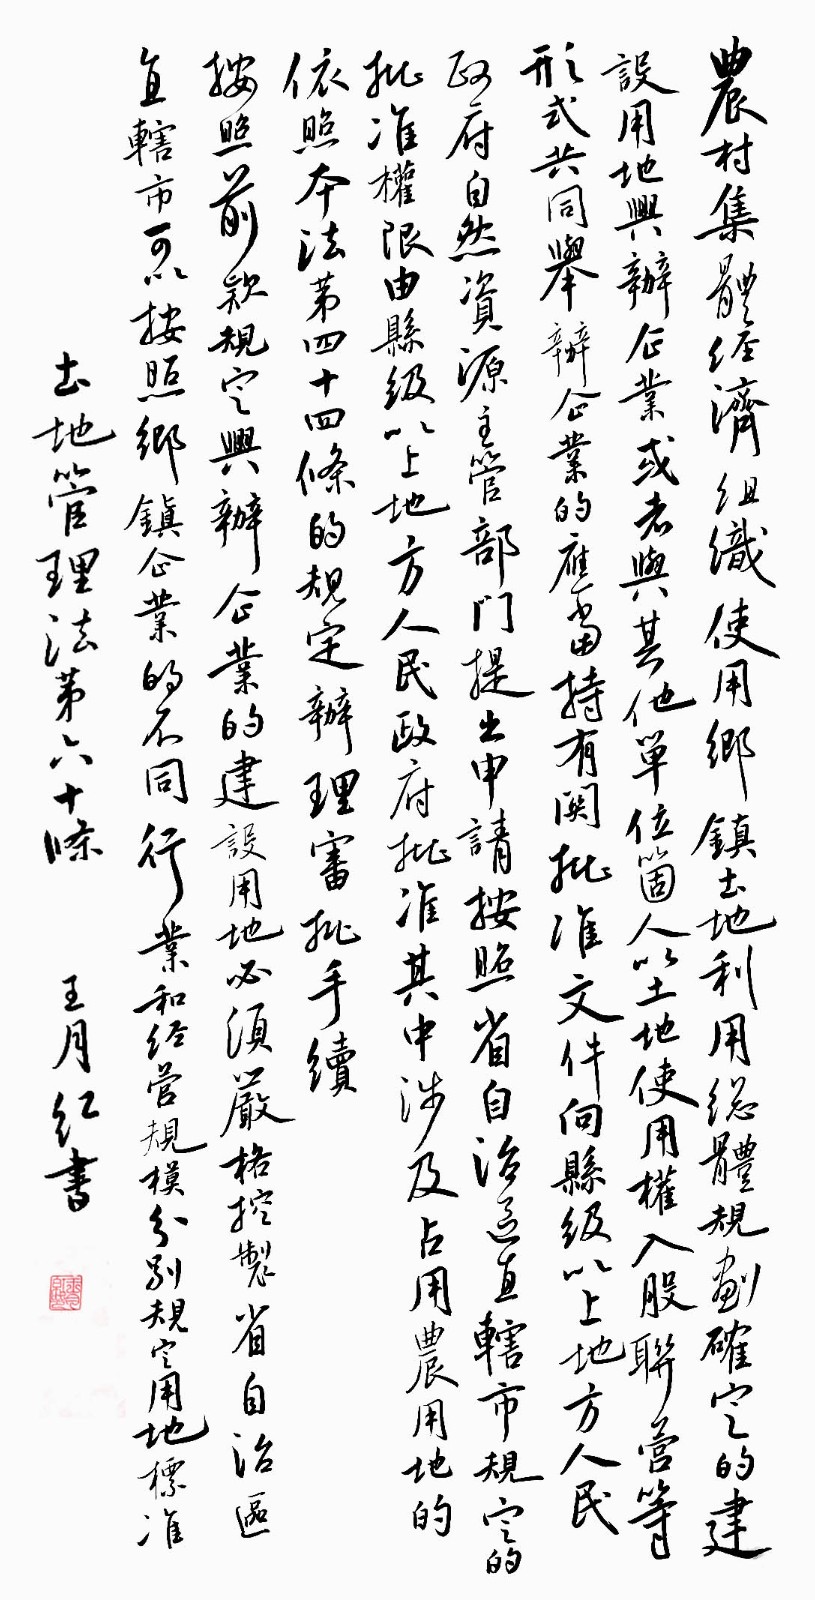 農村集體經濟組織使用鄉鎮土地利用總體規劃確定的建
設用地興辦企業或者與其他單位箇人以土地使用權入股聯營等
形式共同舉辦企業的應當持有関批准文件向縣級以上地方人民
政府自然資源主管部門提出申請按照省自治區直轄市規定的
批准權限由縣級以上地方人民政府批准其中涉及占用農用地的
依照本法第四十四條的規定辦理審批手續
按照前款規定興辦企業的建設用地必須嚴格控製省自治區
直轄市可以按照鄉鎮企業的不同行業和經營規模分別規定用地標准
土地管理法第六十條
王月红書